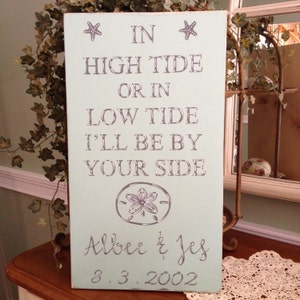 IN
HIGH TIDE
OR IN
LOW TIDE
I'LL BE BY
YOUR SIDE
Albee & Jes
8.3.2002